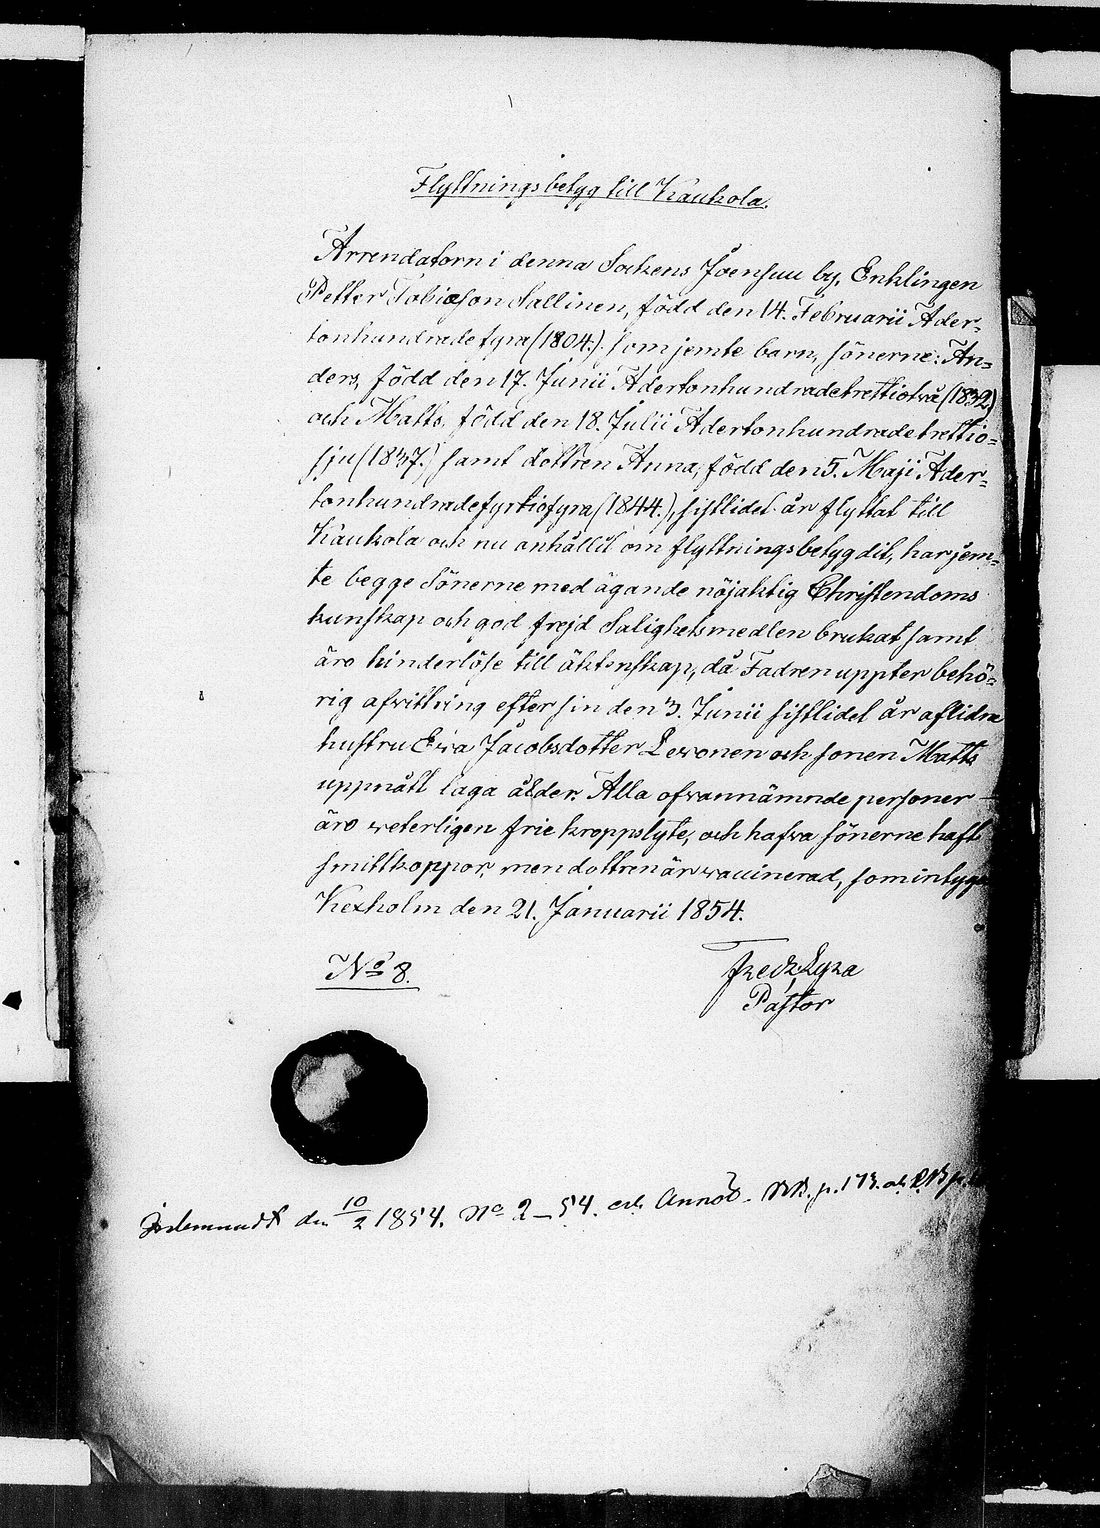 Flyttningsbetyg till Kaukola.
Arrendatorn i denna Sockens Joensuu by, Enklingen
Petter Tobiasson Sallinen, född den 14. Februarii Ader-
tonhundradefyra (1804.) som jemte barn, sönerne: An-
ders, född den 17. Junii Adertonhundradetrettiotvå (1832)
och Matts, född den 18. Julii Adertonhundradetrettio-
sju (1837.) samt dottren Anna, född den 5. Maji Ader-
tonhundradefyrtiofyra (1844.), sistlidet år flyttat till
Kaukola och nu anhållit om flyttningsbetyg dit, har jem-
te begge Sönerne med ägande nöjaktig Christendoms
kunskap och god frejd Salighetsmedlen brukat samt
äro hinderlöse till äktenskap, då Fadren uppter behö-
rig afvittring efter sin den 3. Junii sistlidet år aflidna
hustru Ewa Jacobsdotter Lewonen och sonen Matts
uppnått laga ålder. Alla ofvannämnde personer
äro weterligen frie kroppslyte, och hafva sönerne haft
smittkoppor, men dottren är vaccinerad, som intygar
Kexholm den 21. Januarii 1854.
No 8.
Fredr Lyra
Pastor
den 10/2 1854. No 2-54. och Annot. p. 173. och